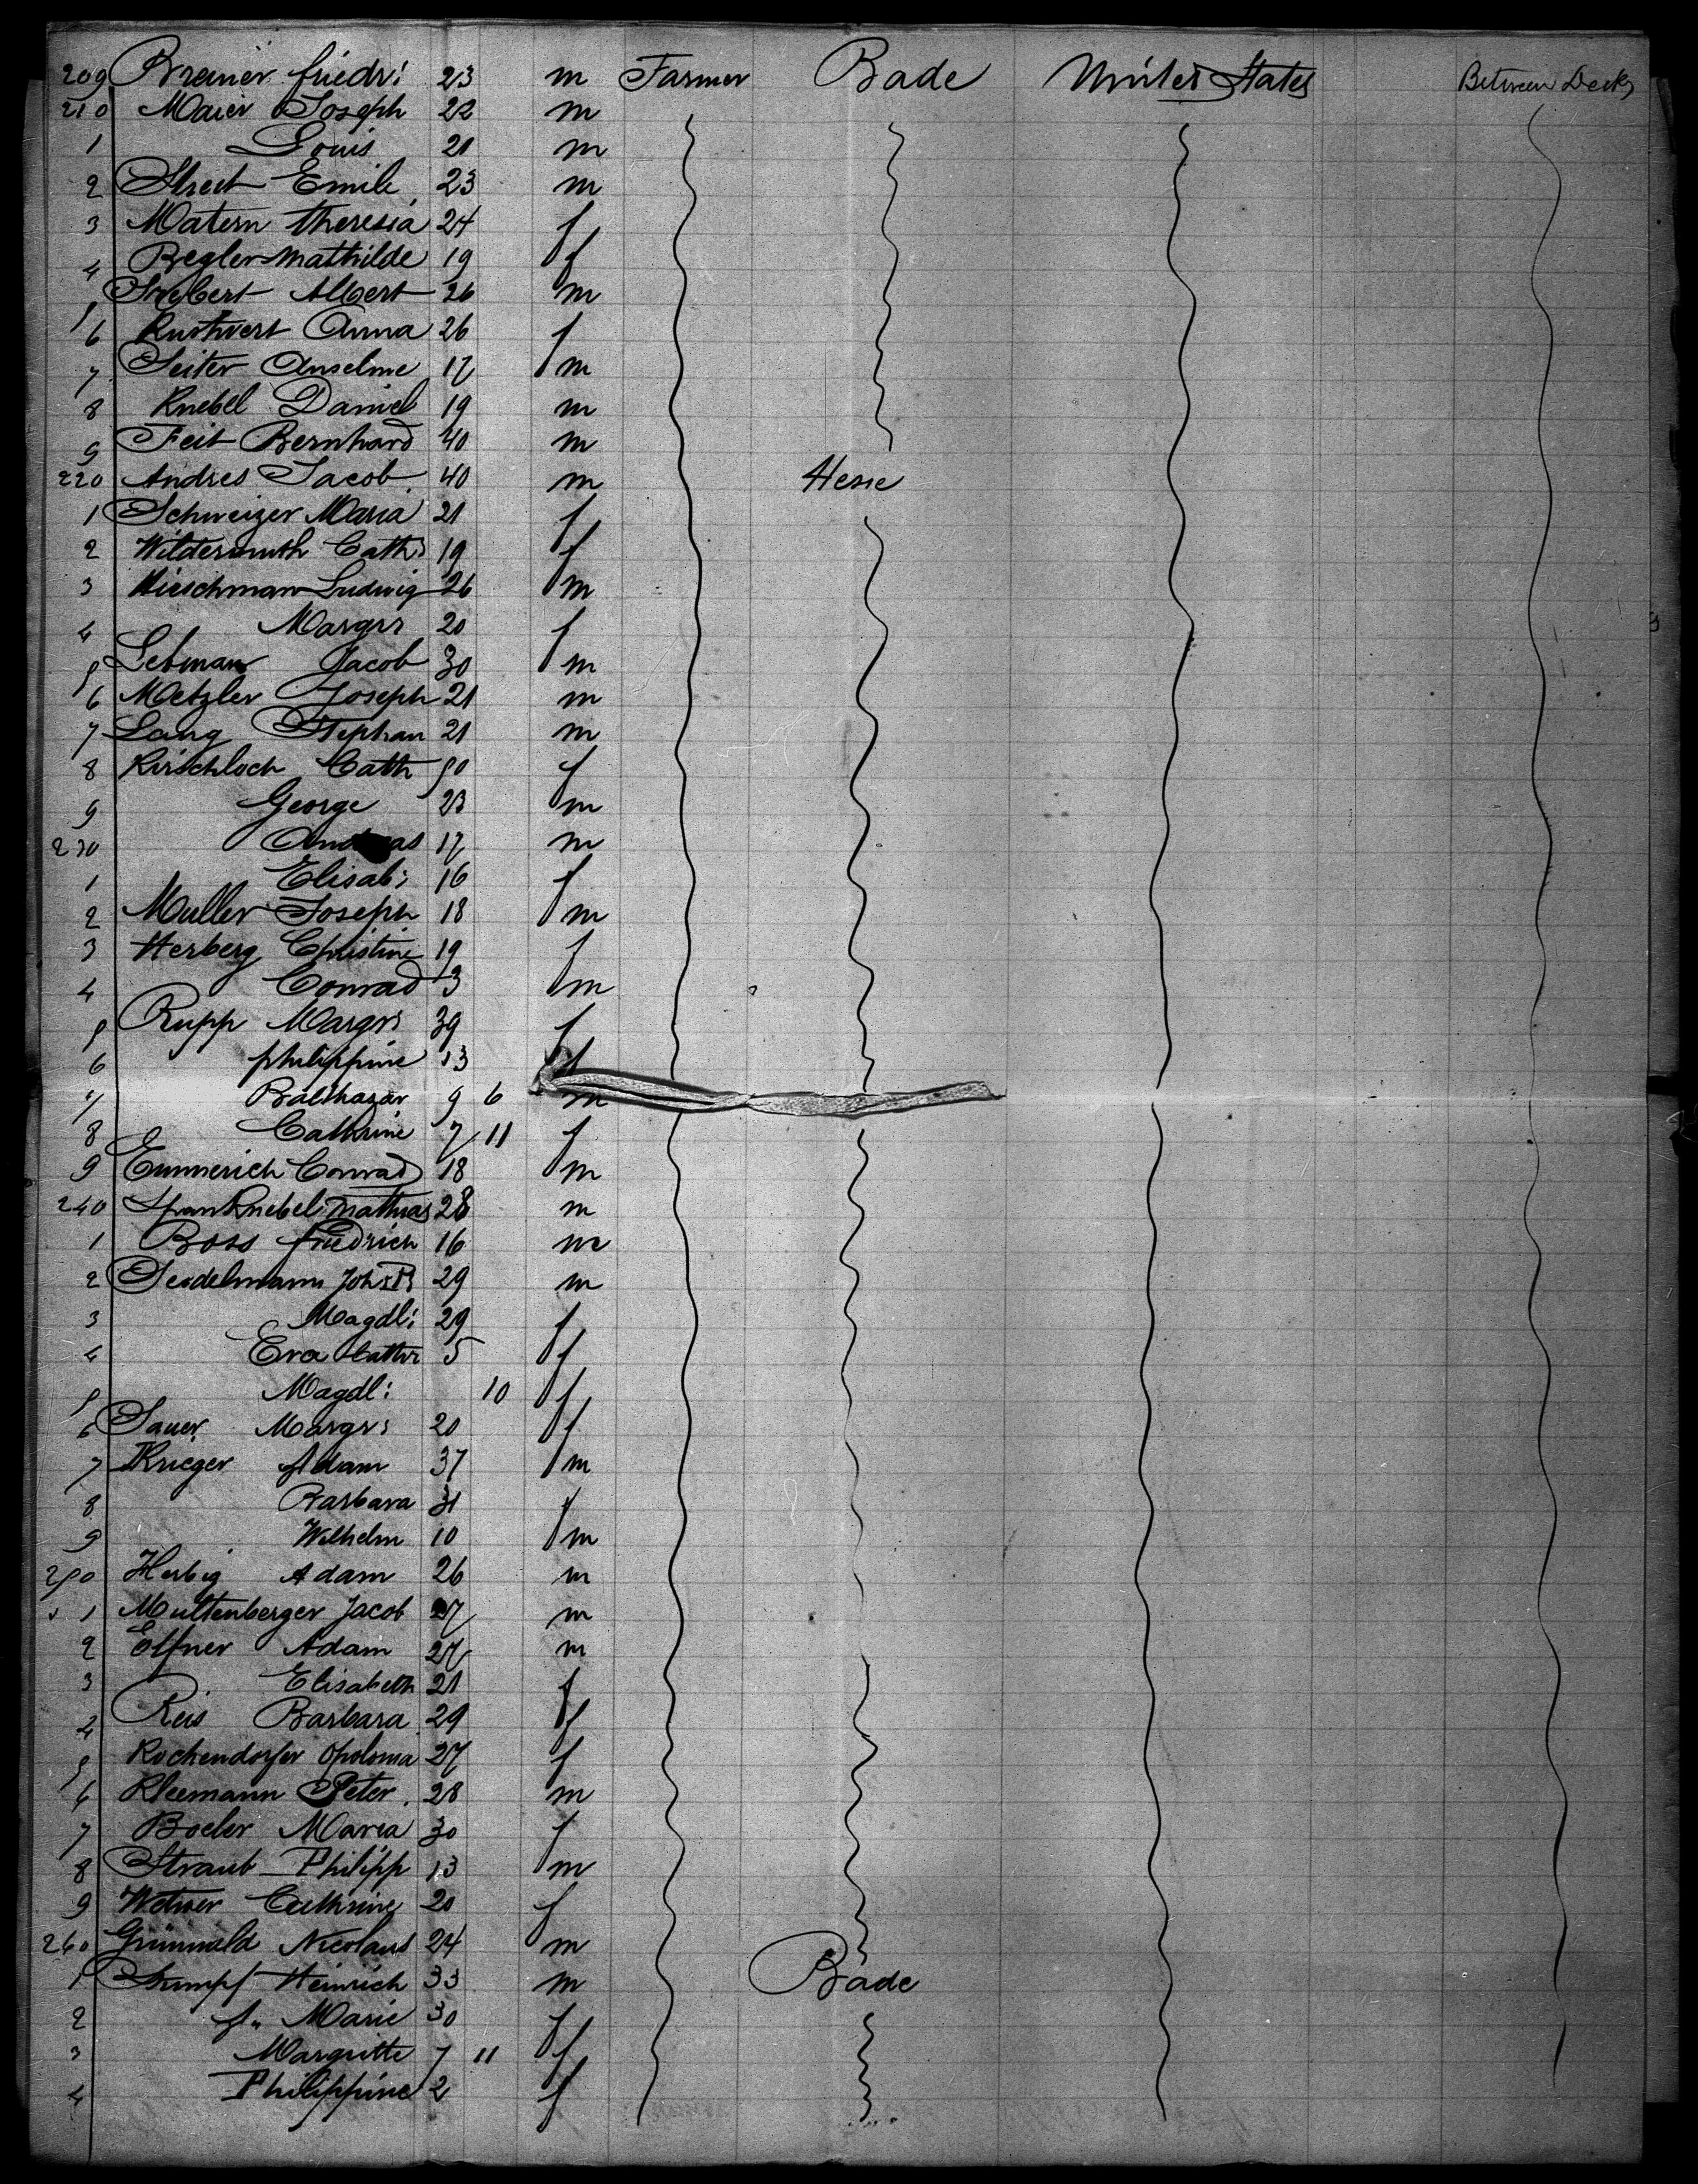 209 Bremer friedr: 23 m Farmer Bade United States Between Decks
210 Maier Joseph 22 m
1 Louis 21 m
2 Streit Emile 23 m
3 Matern Theresia 24 f
4 Begler Mathilde 19 f
5 Siebert Albert 26 m
6 Anna 26 f
7 Seiter Anselme 17 m
8 Knebel Daniel 19 m
9 Feit Bernhard 40 m
220 Andres Jacob 40 m Hesse
1 Schweizer Maria 21 f
2 Wildermuth Cath: 19 f
3 Hirschman Ludwig 26 m
4 Margr: 20 f
5 Lebman Jacob 30 m
6 Metzler Joseph 21 m
7 Lang Stephan 21 m
8 Kirschloch Cath 50 f
9 George 23 m
230 Andreas 17 m
1 Elisab: 16 f
2 Muller Joseph 18 m
3 Herberg Christine 19 f
4 Conrad 3 m
5 Rupp Margr: 39 f
6 philippine 13 f
7 Balthazar 9 6 m
8 Cathrine 7 11 f
9 Emmerich Conrad 18 m
240 Spanknebel Mathias 28 m
1 Boss friedrich 16 m
2 Seidelmann Joh: 29 m
3 Magdl: 29 f
4 Eva Cathr 5 f
5 Magdl: 10 f
6 Sauer Margr: 20 f
7 Krieger Adam 37 m
8 Barbara 31 f
9 Wilhelm 10 m
250 Herbig Adam 26 m
1 Multenberger Jacob 27 m
2 Elfner Adam 27 m
3 Elisabeth 21 f
4 Reis Barbara 29 f
5 Rochendorfer Opolonia 27 f
6 Kleemann Peter 28 m
7 Boeler Maria 30 f
8 Straub Philipp 13 m
9 Cathrine 20 f
260 Grünwald Nicolaus 24 m
1 Stumpf Heinrich 33 m Bade
2 A. Marie 30 f
3 Margritte 7 11 f
4 Philippine 2 f